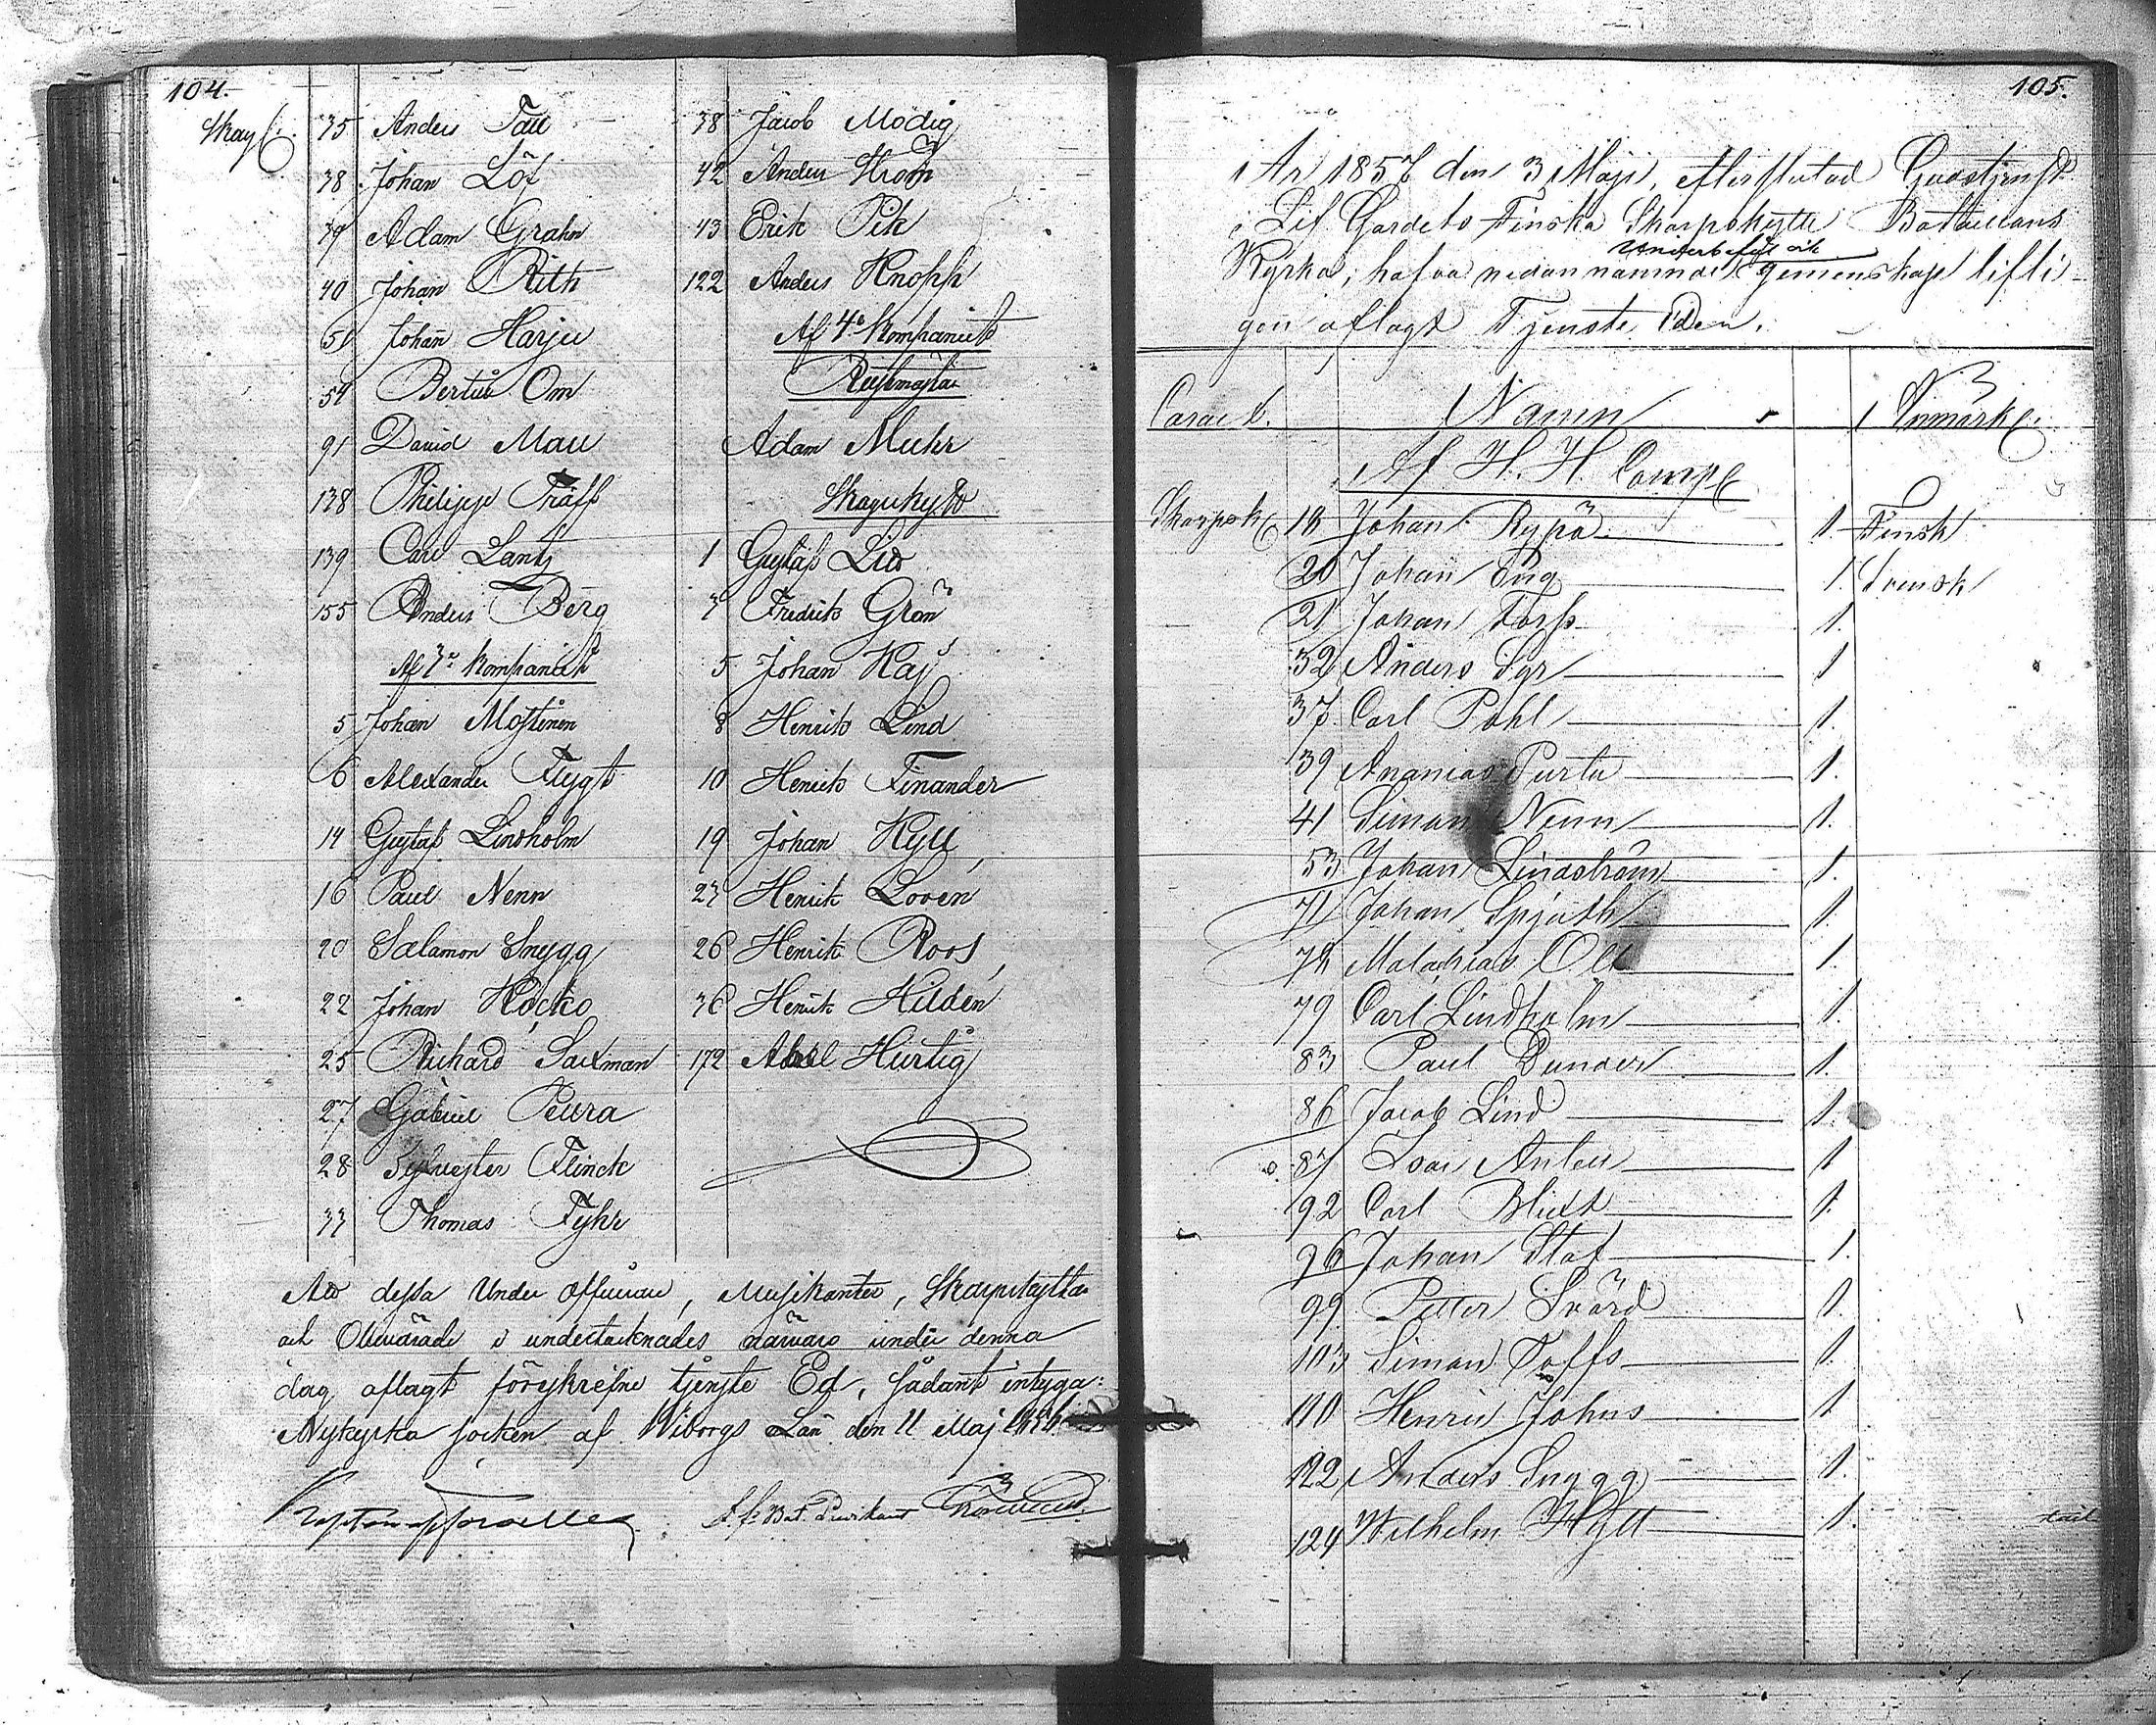 104.
Skarp
35 Anders Tall
38 Johan Löf
39 Adam Grahn
40 Johan Rith
51 Johan Harju
54 Bertil Om
91 David Mall
138 Philipp Träff
139 Carl Lantz
155 Anders Berg
Af 3e Kompaniet
5 Johan Mostinen
6 Alexander Flygt
14 Gustaf Lindholm
16 Paul Nenn
20 Salamon Snygg
22 Johan Kocko
25 Richard Saxman
27 Gabriel Peura
28 Sylvester Flinck
33 Thomas Fyhr
38 Jacob Modig
42 Anders Ström
43 Erik Pik
122 Anders Knopp
Af 4e Kompaniet
Rustmästar
Adam Muhr
Skarpskytt
1 Gustaf Lid
3 Fredrik Grön
5 Johan Kaj
8 Henrik Lind
10 Henrik Finander
19 Johan Hyll
23 Henrik Loven
26 Henrik Roos
36 Henrik Hilden
172 Abel Hurtig
Att dessa Under officerare, Musikanter, Skarpskyttar
och i undertecknades närvaro under denna
dag aflagt föreskrefne tjenste Ed, sådant intyga:
Nykyrka socken af Wiborgs Län den 11 Maj
105.
År 1857 den 3 Maji, efter slutad Gudstjenst
i Lif Gardets Finska Skarpskytte Bataillons
Underbefäl och
Kyrka, hafva nedan nämnde gemenskap lifli-
gen aflagt Tjenste Eden.
Caract. Namn Anmärk
Af H. H. Comp
Skarpsk 18 Johan Rypä 1 Finsk
20 Johan Äng 1 Svensk
21 Johan Forss 1.
32 Anders Syr 1
37 Carl Pohl 1.
39 Ananias Purtu 1.
41 Simon Nenn 1.
53 Johan Lindström 1.
71 Johan Spjuth 1.
78 Malachias 1.
79 Carl Lindholm 1.
83 Paul Dunder 1
86 Jacob Lind 1.
87 Isac 1
92 Carl Blixt 1.
96 Johan Staf 1.
99 Petter Svärd 1.
103 Simon Toffs 1.
110 Henric Johns 1
122 Anders Snygg 1.
124 Wilhelm Hyll 1.